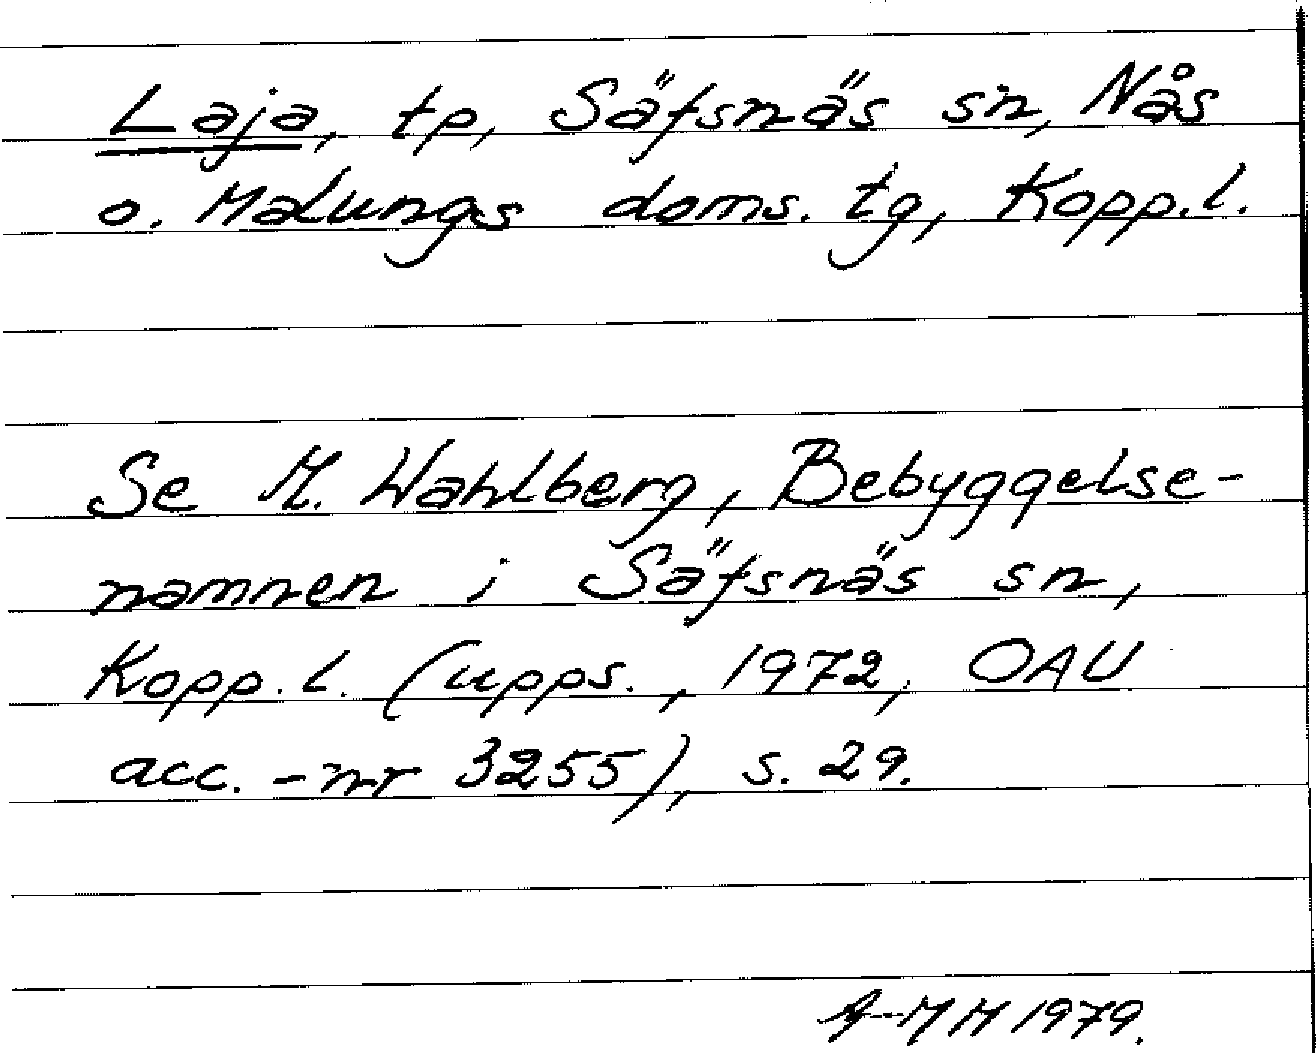 Laja, tp, Säfsnäs sn, Nås
o. Malungs doms. tg, Kopp.l.
Se M. Wahlberg, Bebyggelse-
namnen i Säfsnäs sn,
Kopp.l. (upps., 1972, OAU
acc.-nr 3255), s. 29.
A-MH 1979.